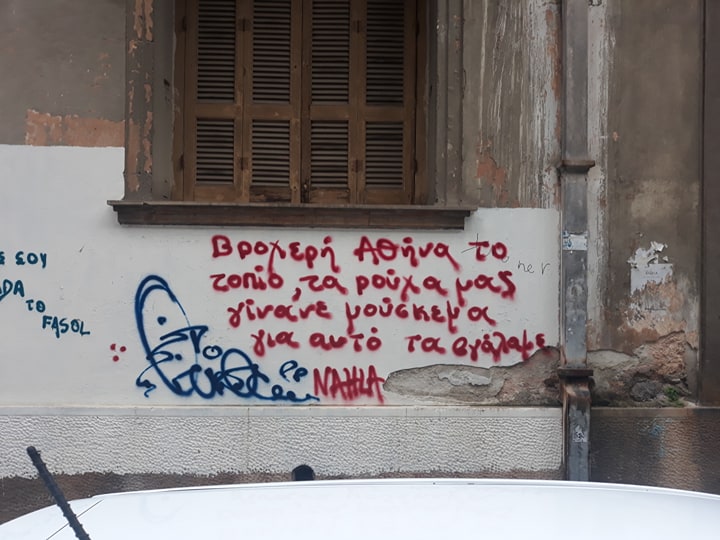 Βροχερή Αθήνα το
τοπίο, τα ρούχα μας
γίνανε μούσκεμα
για αυτό τα βγάλαμε
NAHLA
ΣΟΥ
ΤΟ
FASOL
ner